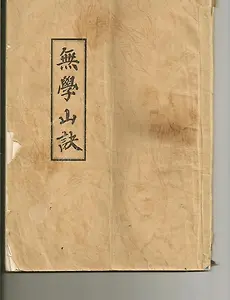 無學山訣